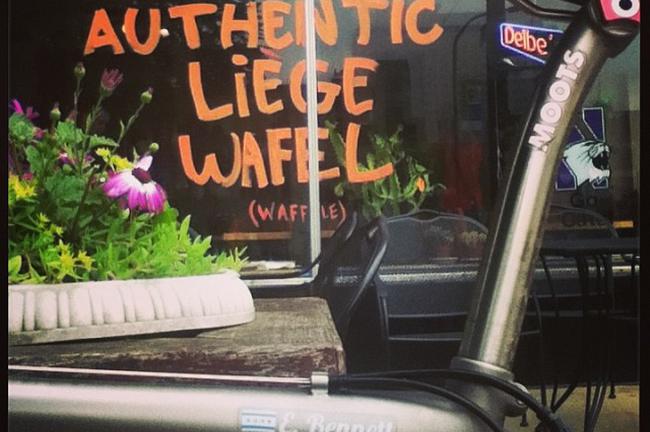 AUTHENTIC
LiÈGE
WAFEL
(WAFFLE)
Delbe'
MOOTS
Go
Cats
E. Bennett